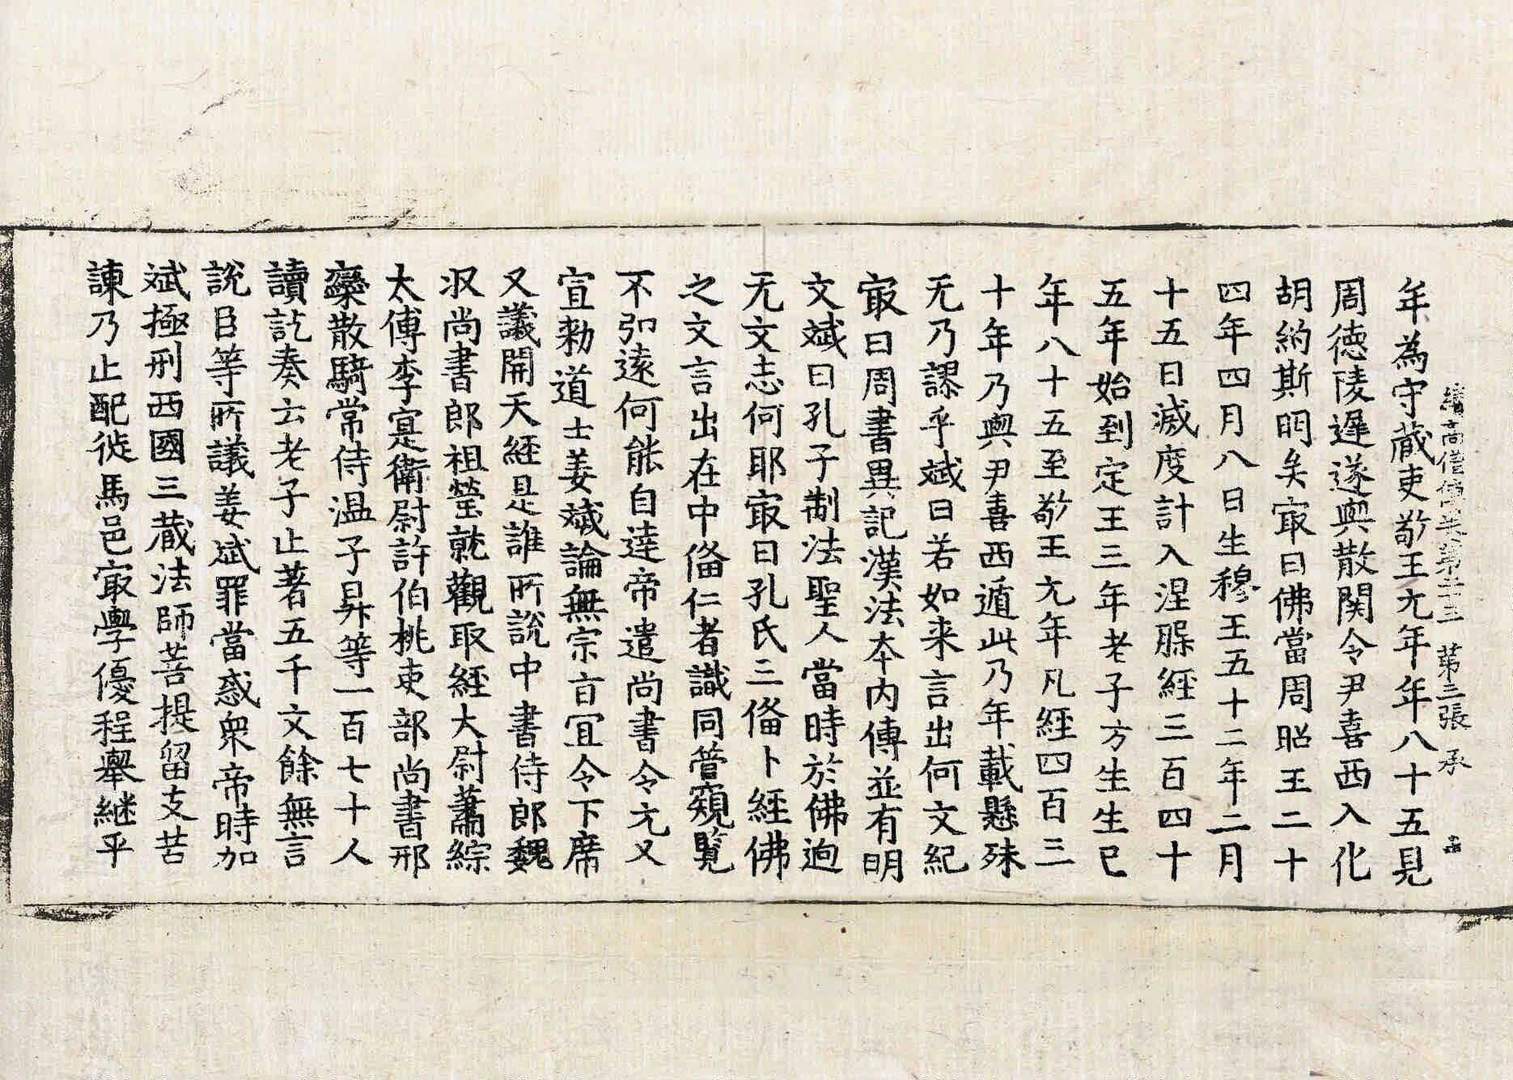 續高僧傳卷第二十三 第三張 承
年為守蔵吏敬王元年年八十五見
周德陵遲遂與散関令尹喜西入化
胡約斯明矣㝡曰佛當周昭王二十
四年四月八日生穆王五十二年二月
十五日滅度計入涅槃經三百四十
五年始到定王三年老子方生生已
年八十五至敬王元年凡經四百三
十年乃與尹喜西遁此乃年載懸殊
无乃謬乎斌曰若如来言出何文紀
㝡曰周書異記漢法本內傳並有明
文斌曰孔子制法聖人當時於佛逈
无文志何耶㝡曰孔氏三俻卜經佛
之文言出在中俻仁者識同管窺覧
不弘遠何能自達帝遣尚書令元又
宣勑道士姜斌論無宗旨冝令下席
又議開天經是誰所說中書侍郎魏
収尚書郎祖瑩就觀取經大尉蕭綜
太傅李寔衛尉許伯桃吏部尚書邢
欒散騎常侍温子昇等一百七十人
讀訖奏云老子止著五千文餘無言
說臣等所議姜斌罪當惑衆帝時加
斌極刑西國三蔵法師菩提留支苦
諫乃止配徙馬邑㝡學優程舉継乎